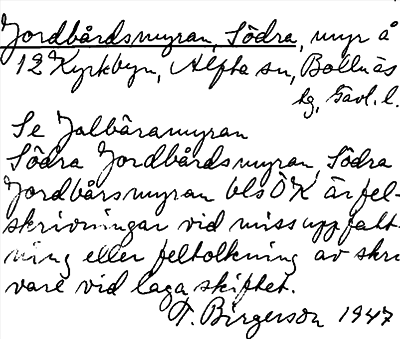 Jordbårdsmyran, Södra, myr å
12 Kyrkbyn, Alfta sn, Bollnäs
tg, Gävl. l.
Se Jalbäramyran
Södra Jordbårdsmyran, Södra
Jordbårsmyran bls ÖK är fel-
skrivningar vid missuppfatt-
ning eller feltolkning av skri
vare vid laga skiftet.
T. Birgerson 1947